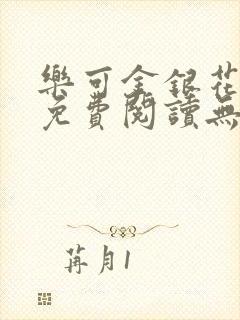 樂可金銀花
免費閱讀無
苒月1